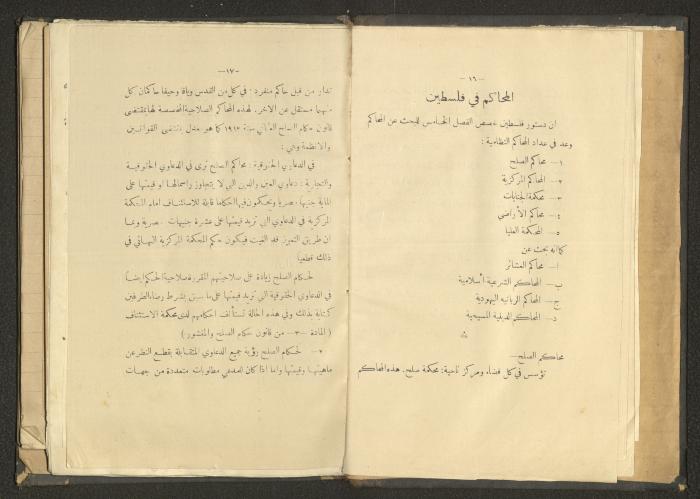 -١٦-
المحاكم في فلسطين
ان دستور فلسطين خصص الفصل الخامس للبحث عن المحاكم
وعد في عداد المحاكم النظامية :
١- محاكم الصلح
٢- المحاكم المركزية
٣- محكمة الجنايات
٤- محاكم الأراضي
٥- المحكمة العليا
كما انه بحث عن
ا- محاكم العشائر
ب- المحاكم الشرعية الاسلامية
ج- المحاكم الربانيه اليهودية
د- المحاكم الدينية المسيحية
محاكم الصلح-
تؤسس في كل قضاء ومركز ناحية: محكمة صلح. هذه المحاكم
-١٧-
تدار من قبل حاكم منفرد. في كل من القدس ويافا وحيفا حاكمان كل
منهما مستقل عن الاخر. لهذه المحاكم الصلاحية المخصصة لها بمقتضى
قانون حكام الصلح العثماني سنة ١٩١٣ كما هو معدل بمقتضى القوانين
والانظمة وهي :
في الدعاوي الحقوقية : محاكم الصلح ترى في الدعاوي الحقوقية
والتجارية : دعاوي العين والدين التي لا يتجاوز راسمالها او قيمتها على
المائة جنيها مصريا وتحكمون فيها احكاما قابلة للاستئناف امام المحكمة
المركزية في الدعاوي التي تزيد قيمتها على عشرة جنيهات مصرية وبما
ان طريق التمييز قد الغيت فيكون حكم المحكمة المركزية النهائي في
ذلك قطعيا
لحكام الصلح زيادة على صلاحيتهم المقررة صلاحية الحكم ايضاً
في الدعاوي الحقوقية التي تزيد قيمتها على ما سبق بشرط رضاء الطرفين
كتابة بذلك وفي هذه الحالة تستأنف احكامهم لدى محكمة الاستئناف
( المادة -٣- من قانون حكام الصلح والمنشور )
لحكام الصلح رؤية جميع الدعاوي المتقابلة بقطع النظر عن
ماهيتها وقيمتها واما اذا كان للمدعي مطلوبات متعددة من جهات